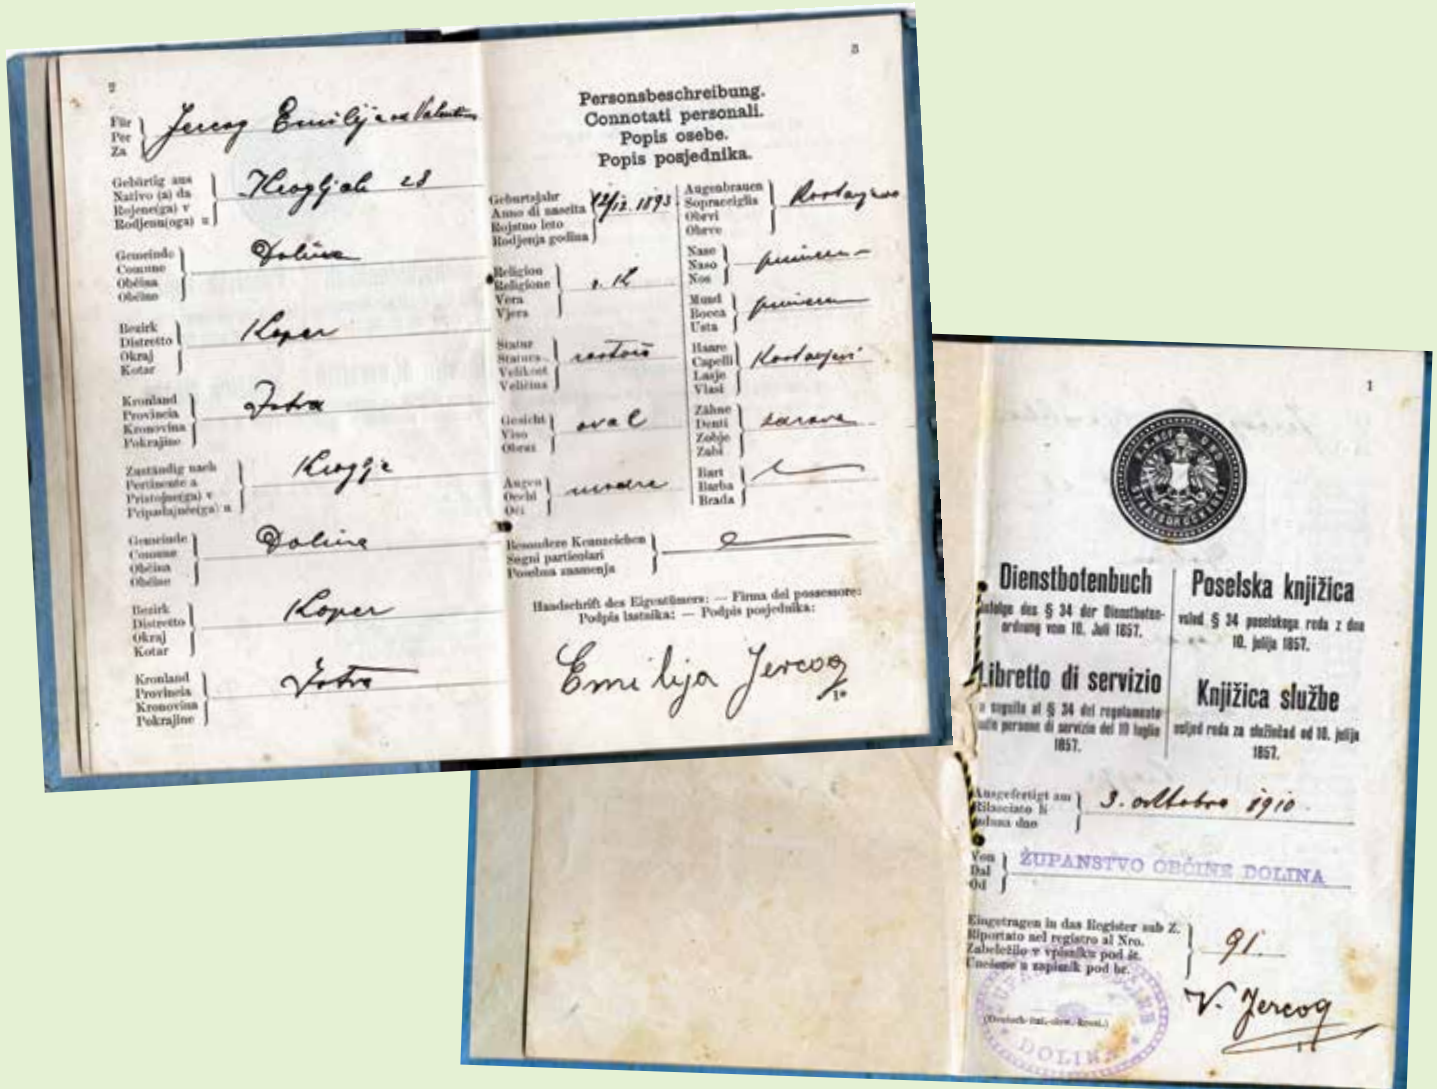 2
Für
Per
Za
Jercog Emilija
Gebürtig aus
Nativo (a) da
Rojene(ga) v
Rodjenu(oga) u
28
Gemeinde
Comune
Občina
Občine
Dolina
Bezirk
Distretto
Okraj
Kotar
Koper
Kronland
Provincia
Kronovina
Pokrajine
Istra
Zuständig nach
Pertinente a
Pristojne(ga) v
Pripadajuće(ga) u
Kroglje
Gemeinde
Comune
Občina
Občine
Dolina
Bezirk
Distretto
Okraj
Kotar
Koper
Kronland
Provincia
Kronovina
Pokrajine
Istra
3
Personsbeschreibung.
Connotati personali.
Popis osebe.
Popis posjednika.
Geburtsjahr
Anno di nascita
Rojstno leto
Rodjenja godina
12/12. 1893
Religion
Religione
Vera
Vjera
r. k
Statur
Statura
Velikost
Veličina
Gesicht
Viso
Obraz
oval
Augen
Occhi
Oči
modre
Augenbrauen
Sopracciglia
Obrvi
Obrve
Nase
Naso
Nos
Mund
Bocca
Usta
Haare
Capelli
Lasje
Vlasi
Kostanjevi
Zähne
Denti
Zobje
Zubi
zdrave
Bart
Barba
Brada
Besondere Kennzeichen
Segni particolari
Posebna znamenja
Handschrift des Eigentümers: — Firma del possessore:
Podpis lastnika: — Podpis posjednika:
Emilija Jercog
1*
1
K. K. HOF- U. STAATSDRUCKEREI
Dienstbotenbuch
zufolge des § 34 der Dienstboten-
ordnung vom 10. Juli 1857.
Poselska knjižica
vsled § 34 poselskega reda z dne
10. julija 1857.
Libretto di servizio
a seguito al § 34 del regolamento
sulle persone di servizio del 10 luglio
1857.
Knjižica službe
uslijed reda za služinčad od 10. julija
1857.
Ausgefertigt am
Rilasciato li
Izdana dne
3. oktobra 1910.
Von
Dal
Od
ŽUPANSTVO OBČINE DOLINA
Eingetragen in das Register sub Z.
Riportato nel registro al Nro.
Zabeležilo v vpisniku pod št.
Unešeno u zapisnik pod br.
91.
V. Jercog
DOLINA